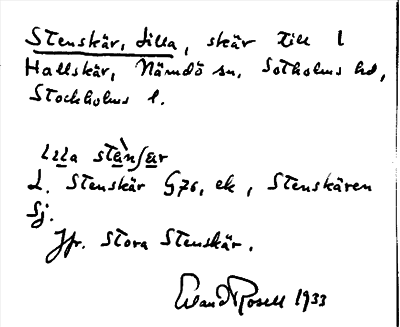 Stenskär, Lilla, skär till 1
Hallskär, Nämdö sn, Sotholms hd,
Stockholms l.
Lilla stènʃær
L. Stenskär G76, ek, Stenskären
Sj.
Jfr. Stora Stenskär.
Erland Rosell 1933